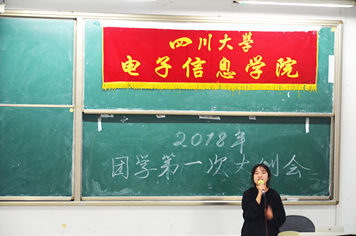 四川大學
电子信息学院
2018年
团学第一次大例会